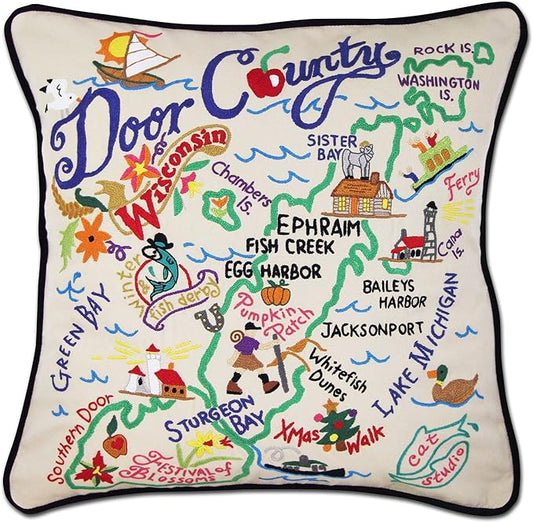 Door County
Wisconsin
ROCK IS.
WASHINGTON
IS.
SISTER
BAY
Ferry
Chambers
Is.
EPHRAIM
FISH CREEK
EGG HARBOR
Cana
Is.
BAILEYS
HARBOR
JACKSONPORT
Winter
fish derby
Pumpkin
Patch
GREEN BAY
LAKE MICHIGAN
Whitefish
Dunes
STURGEON
BAY
Southern Door
XMAS WALK
FESTIVAL OF
BLOSSOMS
cat
studio